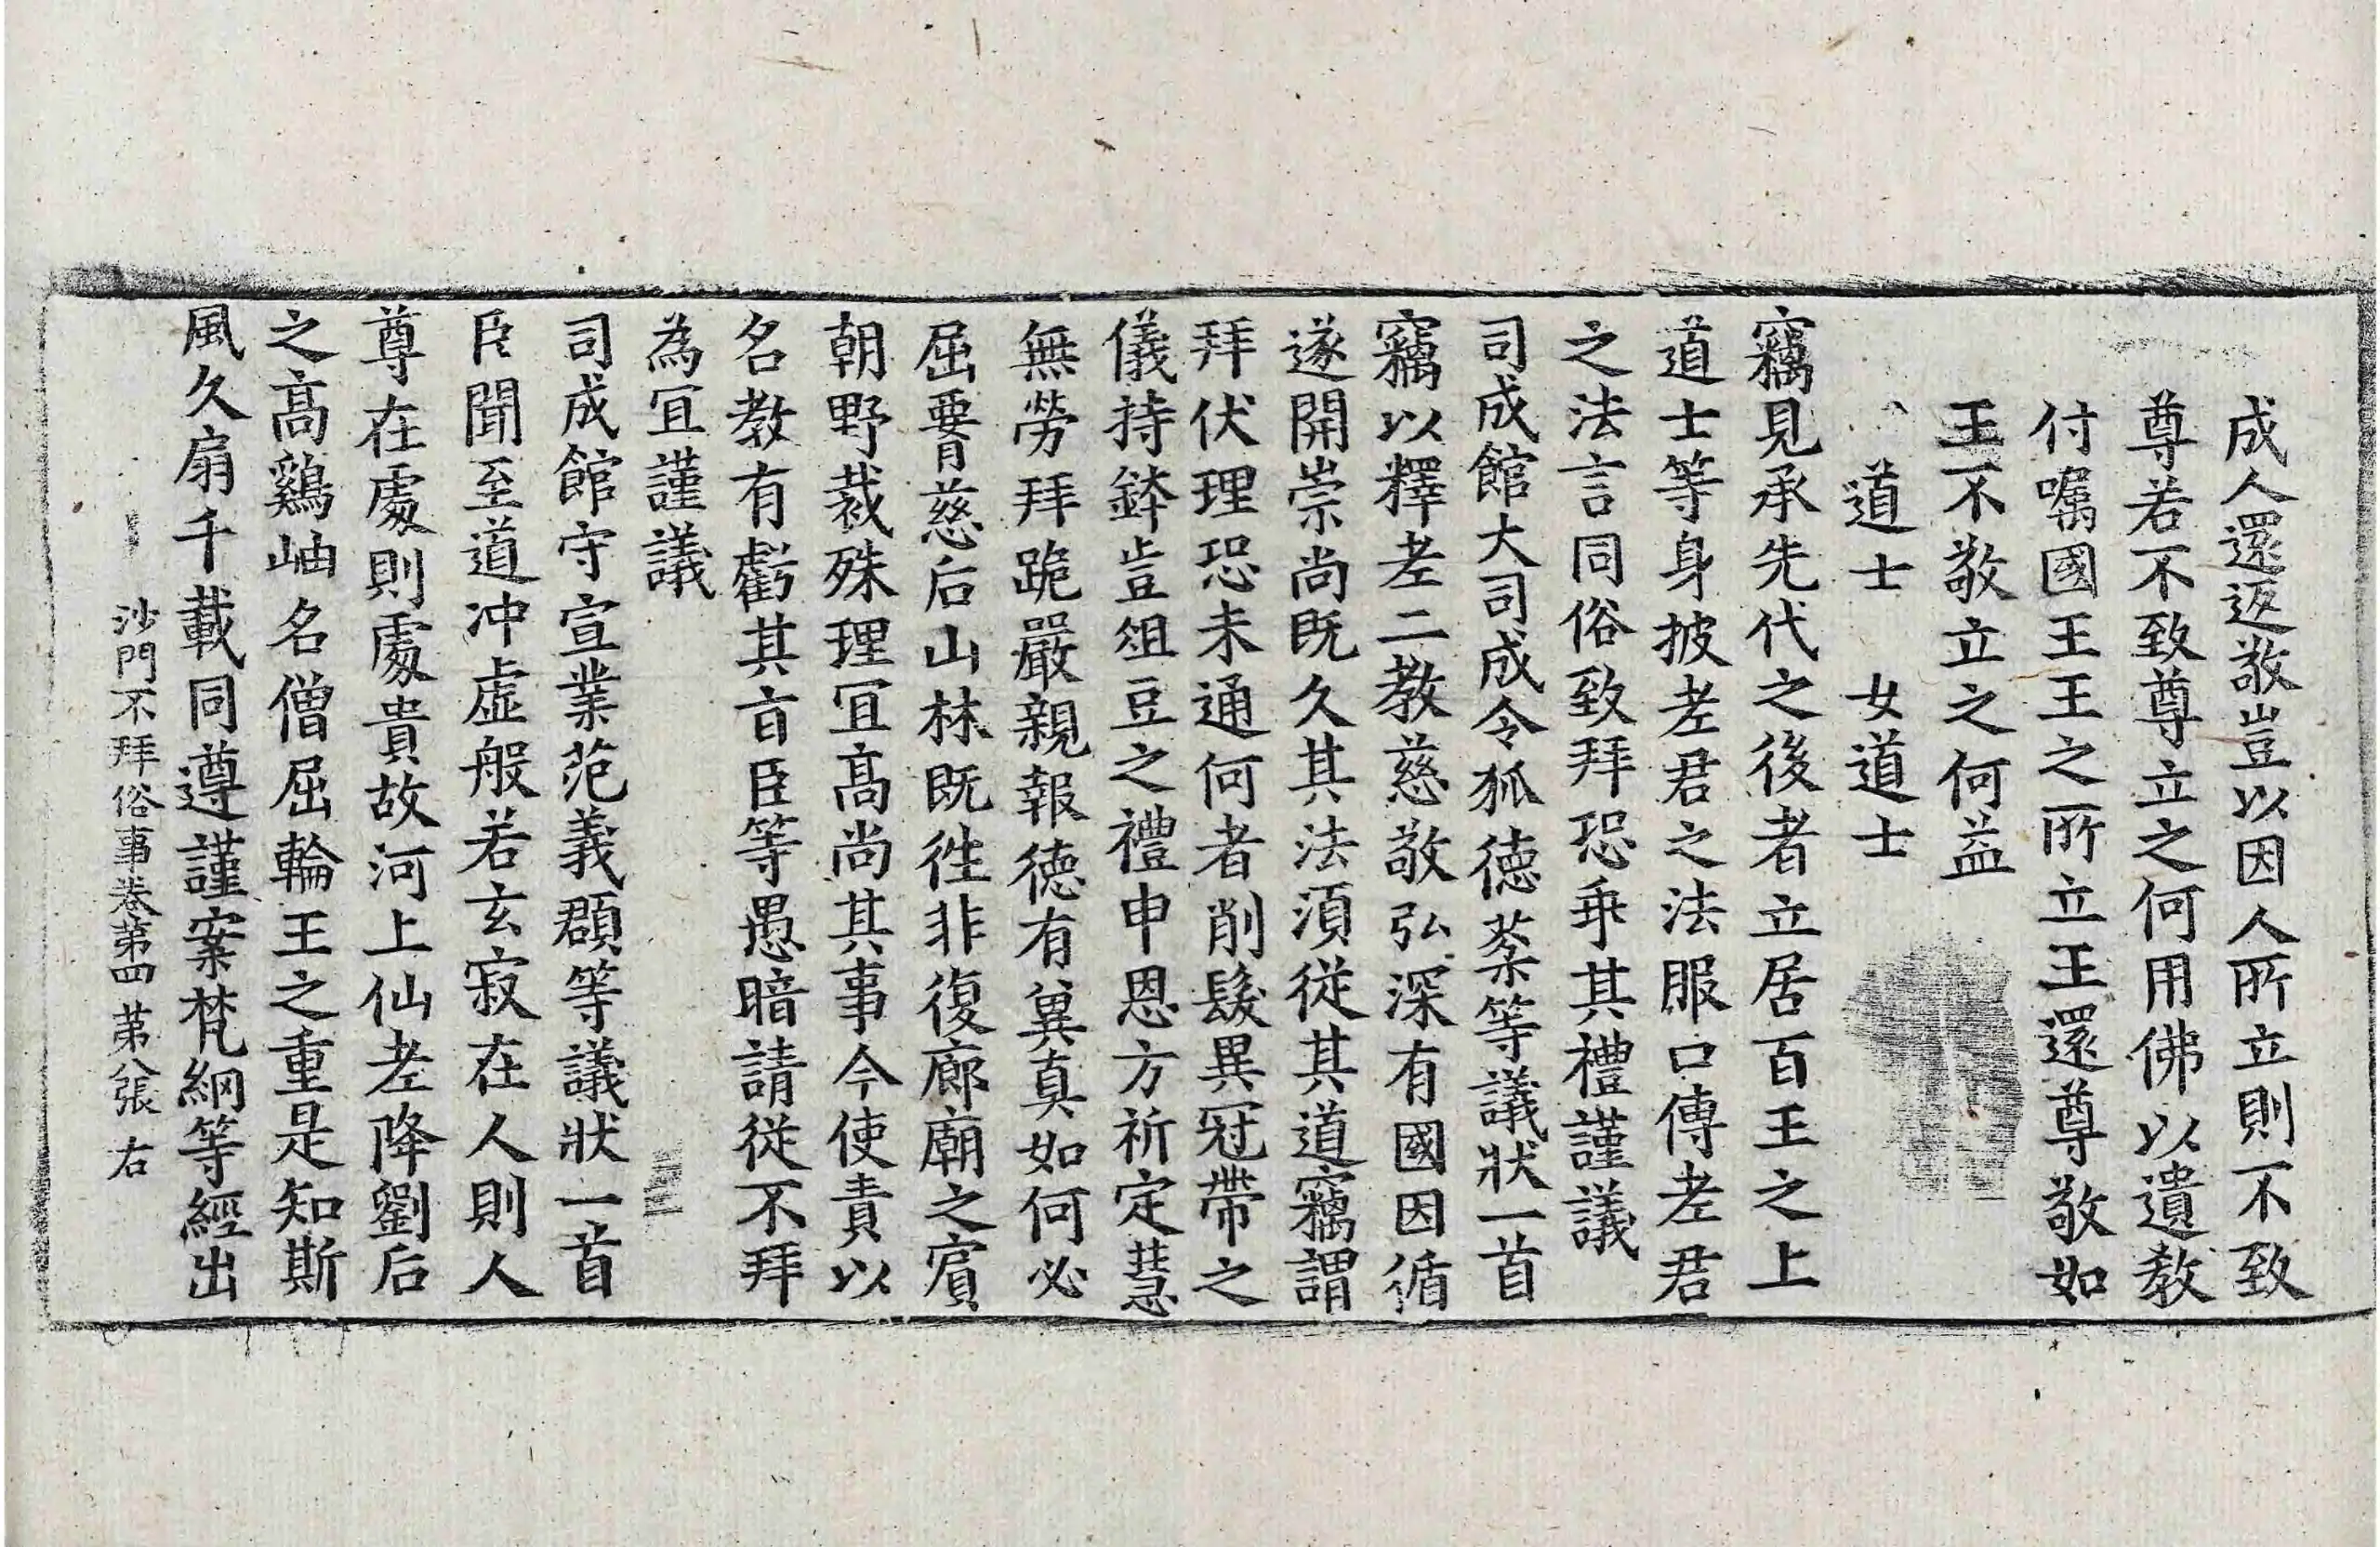 成人還返敬豈以因人所立則不致
尊若不致尊立之何用佛以遺教
付嘱國王王之所立王還尊敬如
王不敬立之何益
道士　女道士
竊見承先代之後者立居百王之上
道士等身披老君之法服口傳老君
之法言同俗致拜恐乖其禮謹議
司成館大司成令狐德棻等議狀一首
竊以釋老二教慈敬弘深有國因循
遂開崇尚既久其法湏從其道竊謂
拜伏理恐未通何者削髮異冠帶之
儀持鉢豈俎豆之禮申恩方祈定慧
無勞拜跪嚴親報德有兾真如何必
屈膂慈后山林既徃非復廊廟之賔
朝野裁殊理冝高尚其事今使責以
名教有虧其㫖臣等愚暗請從不拜
為冝謹議
司成館守宣業范義頵等議狀一首
臣聞至道冲虛般若玄寂在人則人
尊在處則處貴故河上仙老降劉后
之高鷄岫名僧屈輪王之重是知斯
風久扇千載同遵謹案梵網等經出
沙門不拜俗事卷第四　第八張　右